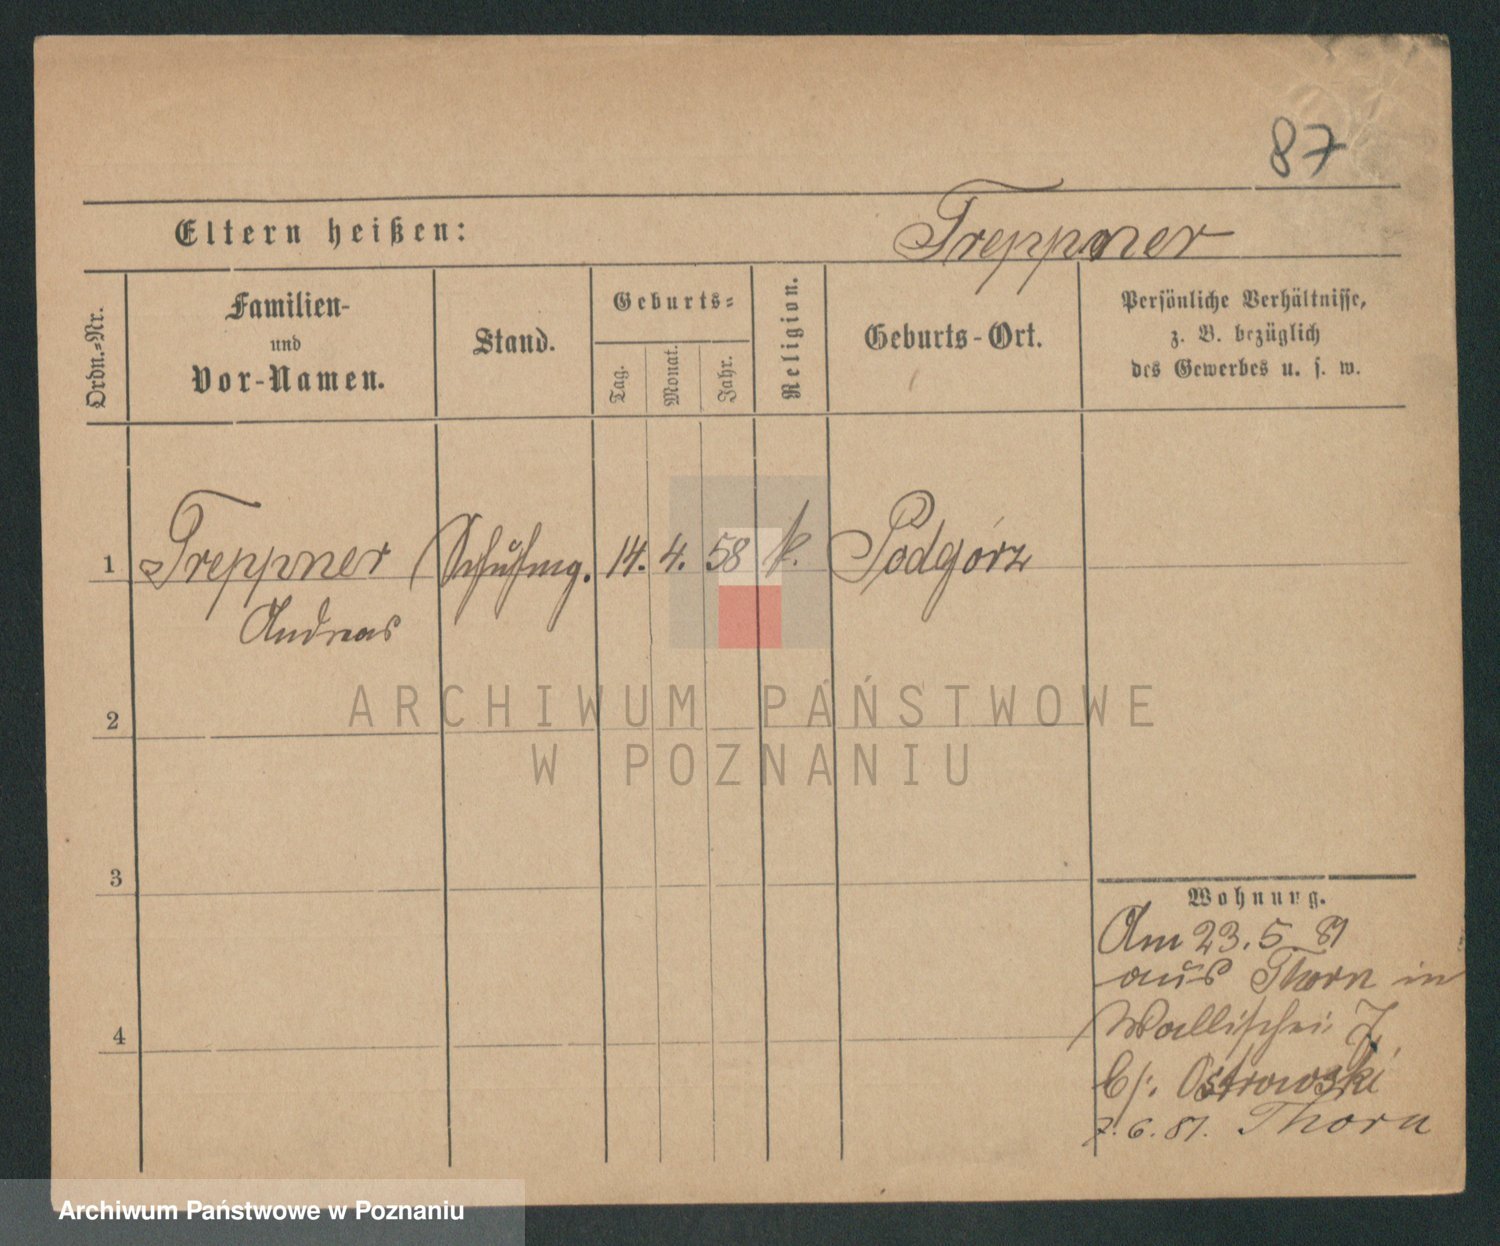 87
Eltern heißen: Treppner
Ordn.-Nr.
Familien-
und
Vor-Namen.
Stand.
Geburts-
Tag.
Monat.
Jahr.
Religion.
Geburts-Ort.
Persönliche Verhältnisse,
z. B. bezüglich
des Gewerbes u. s. w.
1 Treppner Schuhmg. 14. 4. 58 k. Podgórz
Andreas
2
3
4
Wohnung.
Am 23. 5 81
aus Thorn in
Wallischei 7
b/. Ostrowski
7. 6. 81. Thorn
ARCHIWUM PAŃSTWOWE
W POZNANIU
Archiwum Państwowe w Poznaniu